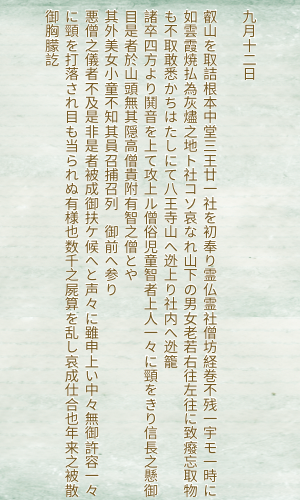 九月十二日
叡山を取詰根本中堂三王廿一社を初奉り霊仏霊社僧坊経巻不残一宇モ一時に
如雲霞焼払為灰燼之地ト社コソ哀なれ山下の男女老若右往左往に致癈忘取物
も不取敢悉かちはたしにて八王寺山へ迯上り社内へ迯籠
諸卒四方より鬨音を上て攻上ル僧俗児童智者上人一々に頸をきり信長之懸御
目是者於山頭無其隠高僧貴附有智之僧とや
其外美女小童不知其員召捕召列　御前へ参り
悪僧之儀者不及是非是者被成御扶ケ候へと声々に雖申上い中々無御許容一々
に頸を打落され目も当られぬ有様也数千之屍算を乱し哀成仕合也年来之被散
御胸朦訖